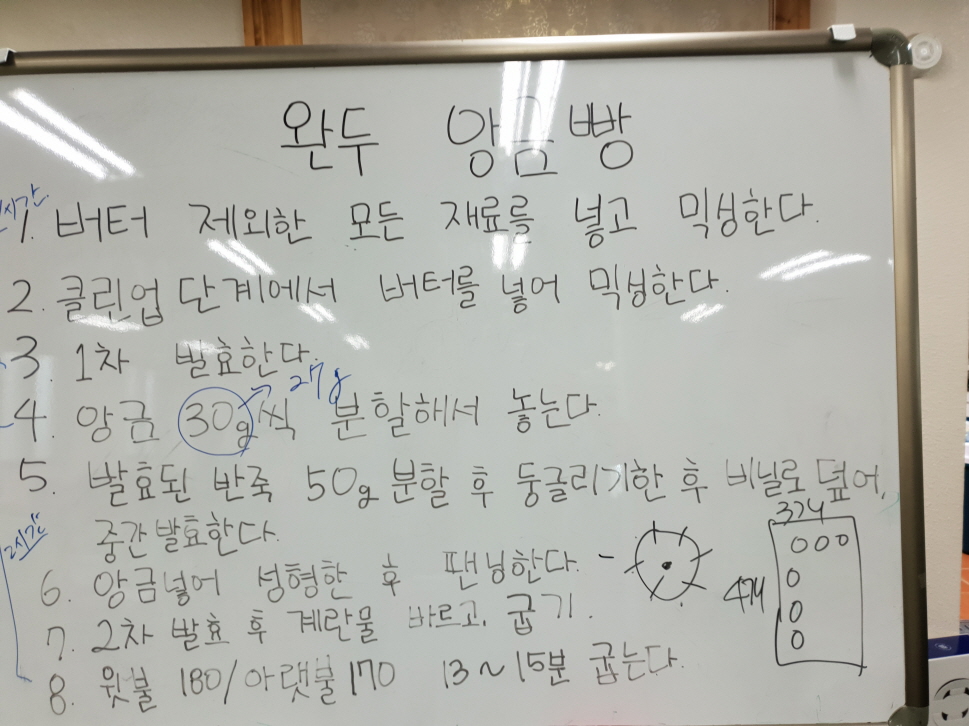 완두 앙금빵
시간
1. 버터 제외한 모든 재료를 넣고 믹싱한다.
2. 클린업 단계에서 버터를 넣어 믹싱한다.
3. 1차 발효한다.
27g
4. 앙금 30g씩 분할해서 놓는다.
5. 발효된 반죽 50g 분할 후 둥글리기한 후 비닐로 덮어,
중간발효한다.
2시간
6. 앙금넣어 성형한 후 팬닝한다.
3개
4개
7. 2차 발효 후 계란물 바르고, 굽기.
8. 윗불 180/아랫불 170 13~15분 굽는다.